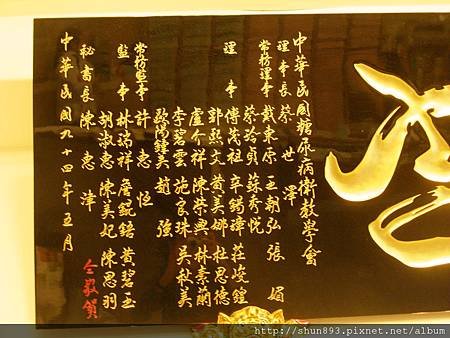 中華民國糖尿病衛教學會
理事長 蔡世澤
常務理事 戴東原 王朝弘 張媚
蔡玲貞 蘇秀悅
理事 傅茂祖 辛錫璋 莊峻鍠
郭熙文 黃美娜 杜思德
盧介祥 陳榮興 林素蘭
李碧雲 施良珠 吳秋美
歐陽鍾美 趙強
常務監事 許惠恒
監事 林瑞祥 詹錕鋙 黃碧玉
胡淑惠 陳美妃 陳思羽
秘書長 陳惠津
仝敬賀
中華民國九十四年五月
http://shun893.pixnet.net/album